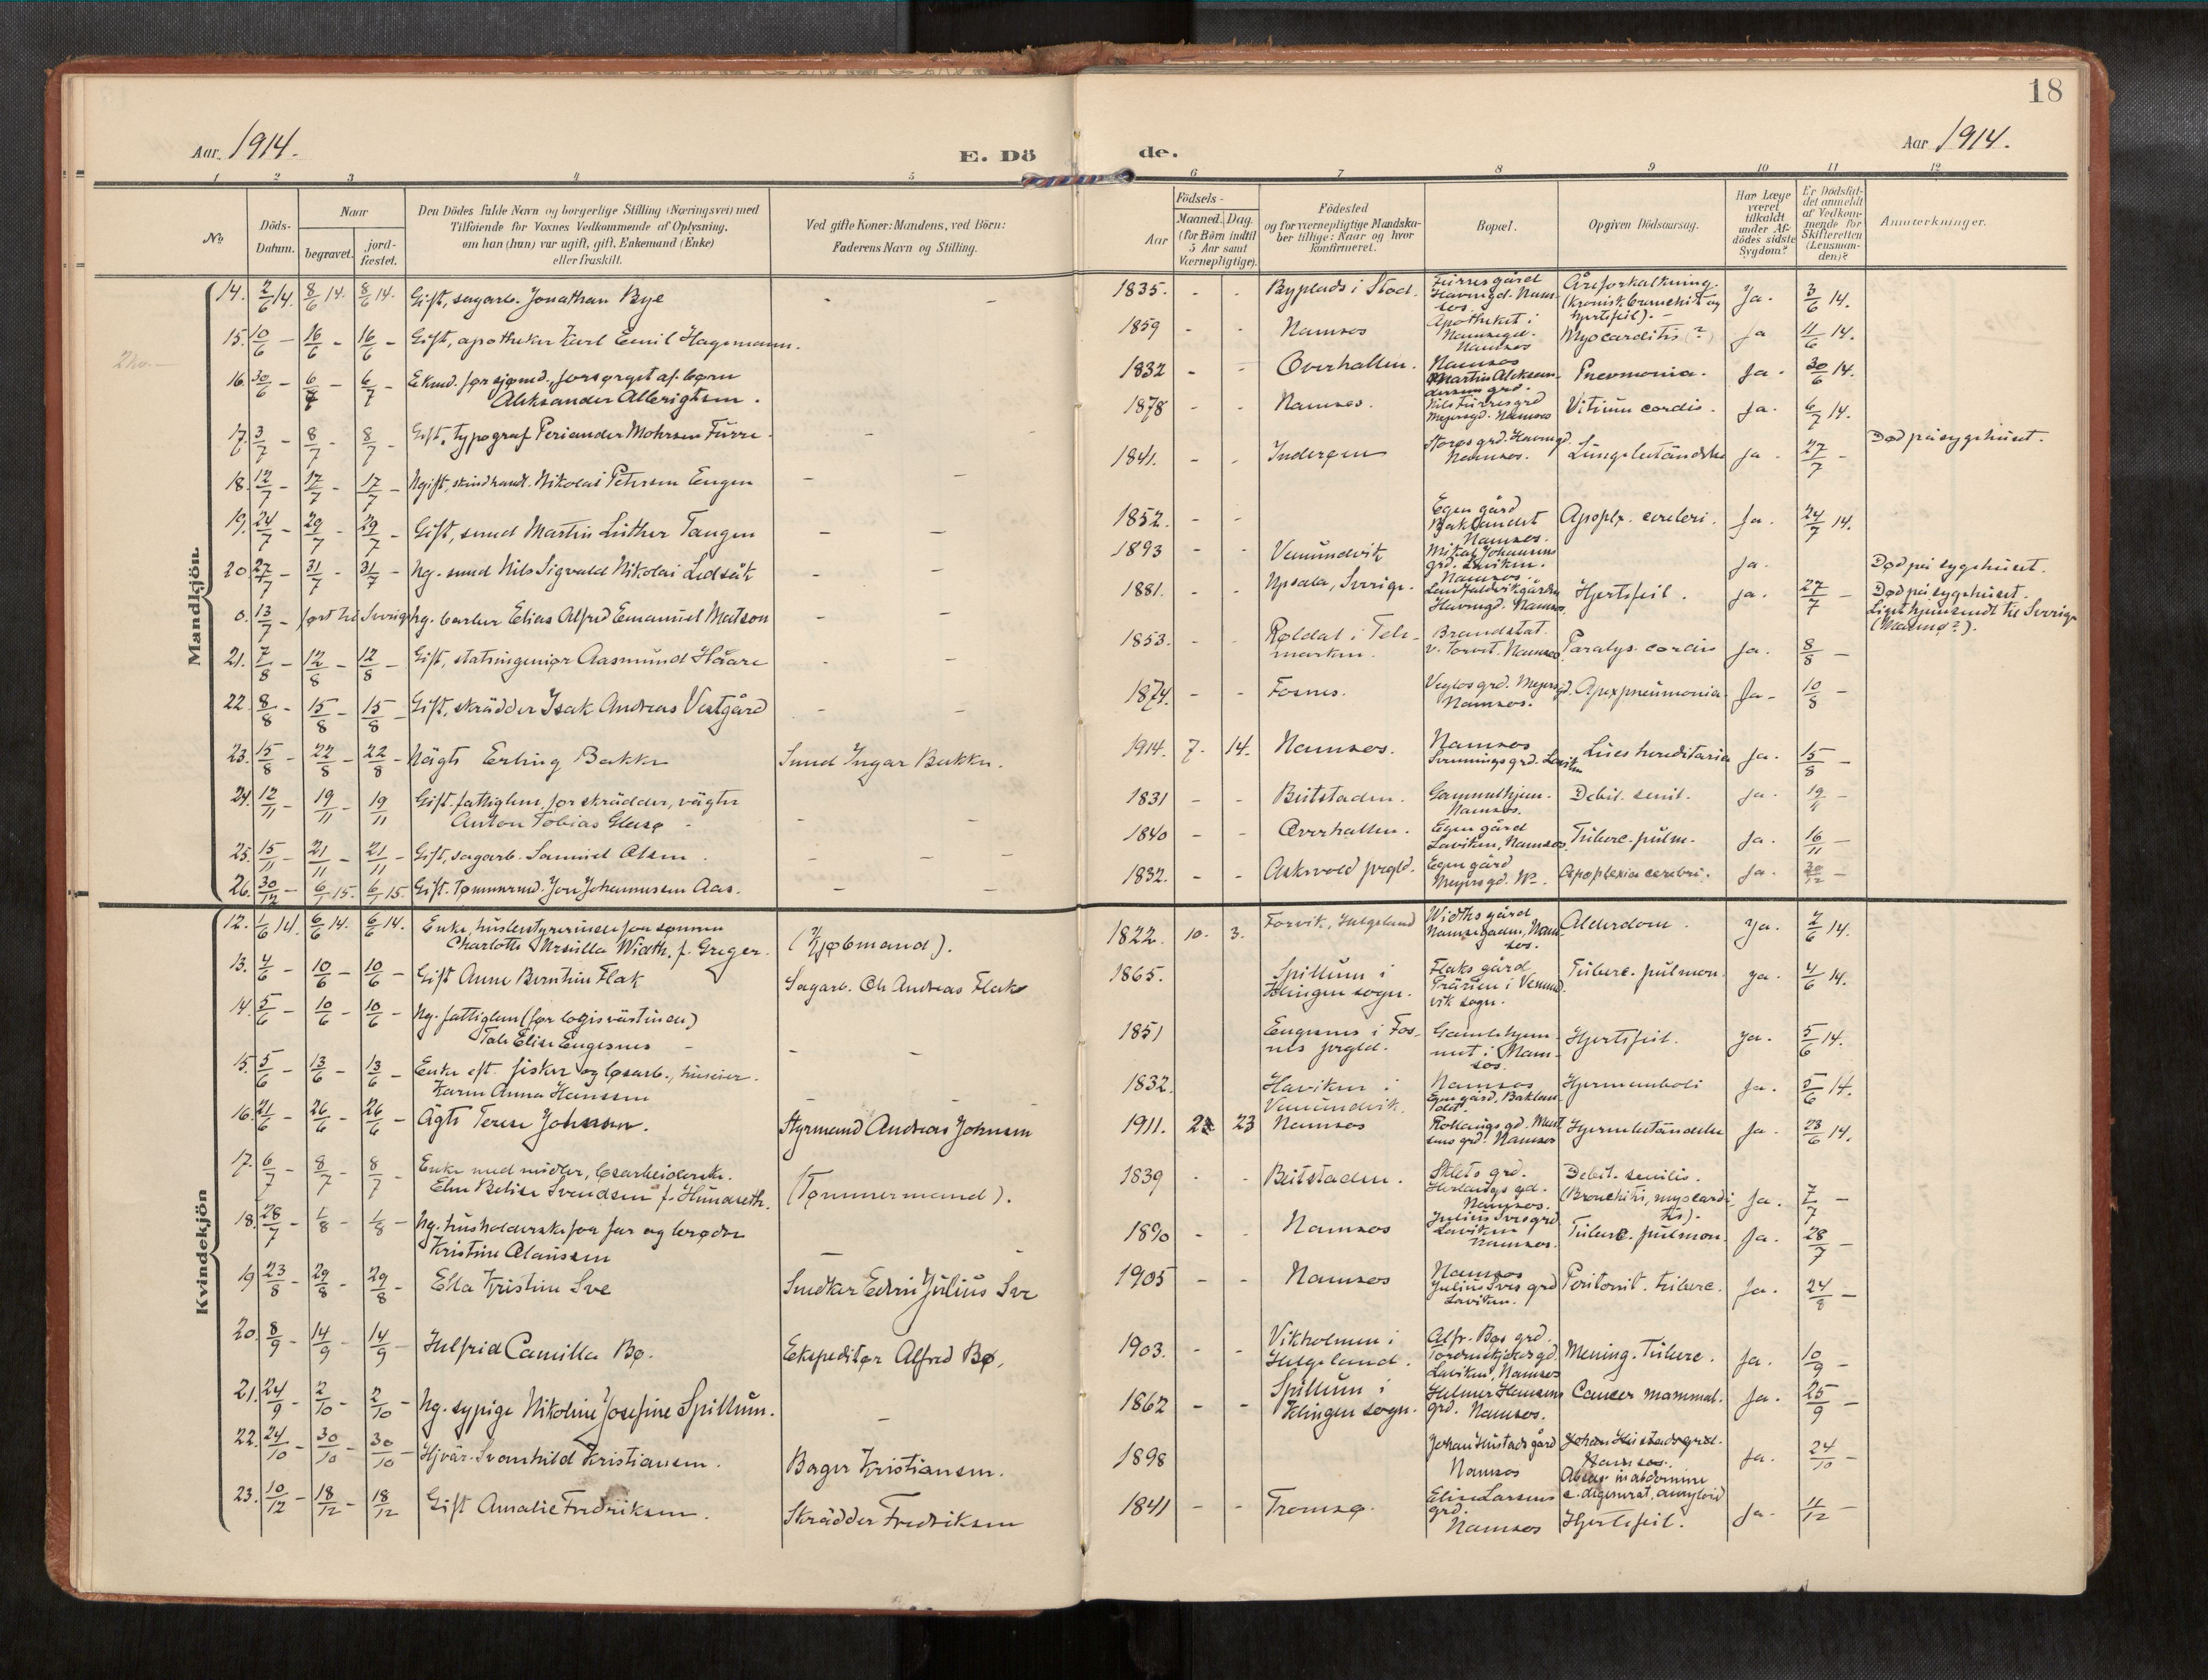 18
Aar. 1914.
E. Dö
de.
Aar 1914.
1 2 3 4 5 6 7 8 9 10 11 12
No.
Döds-Datum.
Naar
begravet.
jord-fæstet.
Den Dödes fulde Navn og borgerlige Stilling (Næringsvei) med
Tilföiende for Voxnes Vedkommende af Oplysning,
om han (hun) var ugift, gift, Enkemand (Enke)
eller fraskilt.
Ved gifte Koner: Mandens, ved Börn:
Faderens Navn og Stilling.
Aar
Födsels-
Maaned. Dag.
(for Börn indtil
5 Aar samt
Værnepligtige).
Födested
og for værnepligtige Mandska-
ber tillige: Naar og hvor
konfirmeret.
Bopæl.
Opgiven Dödsaarsag.
Har Læge
været
tilkaldt
under Af-
dödes sidste
Sygdom?
Er Dödsfal-
det anmeldt
af Vedkom-
mende for
Skifteretten
(Lensman-
den)?
Anmerkninger.
Mandkjön.
14. 2/6 14. 8/6 14. 8/6 14. Gift, sagarb. Jonathan Bye - - 1835. - - Byplads i Stod. Fürres gård Havnegd. Namsos. Åreforkalkning. (kronisk bronchit og hjertefeil). Ja. 3/6 14.
15. 10/6 - 16/6 - 16/6 - Gift, apotheker Karl Emil Hagemann. 1859 - - Namsos Apotheket i Namsegd. Namsos Myocarditis (?) Ja 11/6 14.
16. 30/6 - 6/7 - 6/7 - Ekmd. før sjømd., forsørget af børn
Aleksander Albrigtsen. 1832 - - Overhallen. Namsos Martin Aleksandersens grd. Pnevmonia. Ja. 30/6 14.
17. 3/7 - 8/7 - 8/7 - Gift, typograf Periander Mohrsen Fürre. - - 1878 - - Namsos. Nils Fürres grd Meyersgd. Namsos Vitium cordis. Ja. 6/7 14.
18. 12/7 - 17/7 - 17/7 - Ugift, skindhandl. Nikolai Petersen Engen - - 1841. - - Inderøen Havnegd. Namsos. Lungebetändelse Ja. 27/7 - Død på sygehuset.
19. 24/7 - 29/7 - 29/7 - Gift, smed Martin Luther Tangen - - 1852. - - Egen gård Baklandet Namsos. Apoplx. cerebri. Ja. 24/7 14.
20. 27/7 - 31/7 - 31/7 - Ug. smed Nils Sigvald Nikolai - - 1893 - - Vemundvik Mikal Johansens grd. Laviken. Namsos. Ja. Død på sygehuset.
0. 13/7 - ført til Sverige Ug. barber Elias Alfred Emanuel Matson - - 1881. - - Upsala, Sverige. Havnegd. Namsos Hjertefeil. Ja. 27/7 - Død på sygehuset.
Liget hjemsendt til Sverige
21. 7/8 - 12/8 - 12/8 - Gift, statsingeniør Aasmund Haare - - 1853. - - Røldal i Telemarken. Brandstat. v. Torvet. Namsos Paralys. cordis Ja. 8/8 -
22. 8/8 - 15/8 - 15/8 - Gift, skrädder Isak Andreas Vestgård - - 1874. - - Fosnes. grd. Meyersgd. Namsos. Apexpneumonia Ja. 10/8 -
23. 15/8 - 22/8 - 22/8 - Uägte Erling Bakke Smed Ingar Bakken. 1914. 7. 14. Namsos. Namsos grd. Laviken Lues hereditaria Ja. 15/8 -
24. 12/11 - 19/11 - 19/11 Gift. fattiglem. før skrädder, vägter
Anton Tobias - - 1831 - - Beitstaden. Gammelhjem. Namsos. Debil. senil. Ja. 19/11 -
25. 15/11 - 21/11 - 21/11 - Gift, sagarb. Samuel Olsen. - - - 1840 - - Overhallen. Egen gård Laviken, Namsos. Tuberc. pulm. Ja. 16/11 -
26. 30/12 - 6/1 15. 6/1 15. Gift. Tømmermd. Jon Johannesen Aas. - - 1832. - - Askvold prgld. Egen gård Meyersgd. Ns. Apoplexia cerebri. Ja. 30/12 -
Kvindekjön
12. 1/6 14. 6/6 14. 6/6 14. Enke, husbestyrerinde for sønnen
Charlotte Ursulla Width, f. Greger. (Kjøbmand). 1822. 10. 3. Forvik, Helgeland Widths gård Namsegaden, Namsos. Alderdom. Ja. 2/6 14.
13. 4/6 - 10/6 - 10/6 - Gift Anne Berntine Flak Sagarb. Ole Andreas Flak 1865. Spillum i Klingen sogn. Flaks gård Prärien i Vemundvik sogn. Tuberc. pulmon. Ja. 4/6 14.
14. 5/6 - 10/6 - 10/6 - Ug. fattiglem (før logisvärtinde)
Tale Elise Engesnes - - - 1851 Engesnes i Fosnes prgld. Gamlehjemmet i Namsos. Hjertefeil. Ja. 5/6 14.
15. 5/6 - 13/6 - 13/6 - Enke eft. fisker og løsarb., huseier.
Karen Anna Hansen - - 1832. Haviken i Vemundvik. Namsos Egen gård, Baklandet. Hjerneemboli Ja. 5/6 14.
16. 21/6 - 26/6 - 26/6 - Ägte Terese Johnsen. Styrmand Andreas Johnsen 1911. 2 23 Namsos Namsos Hjernebetändelse Ja. 23/6 14.
17. 6/7 - 8/7 - 8/7 - Enke med midler, løsarbeiderske.
Elen Betise Svendsen f. Hundseth. (Tømmermand). 1839 - - Beitstaden. Sklets grd. Namsos. Debil. senilis. (Bronchitis, myocarditis). Ja. 7/7 -
18. 28/7 - 1/8 - 1/8 - Ug. husholderske for far og brødre
Kristine Olaussen - - 1890 - - Namsos Julius Sves grd Laviken Namsos. Tuberc. pulmon. Ja. 28/7 -
19 23/8 - 29/8 - 29/8 - Ella Kristine Sve Snedker Edvin Julius Sve 1905 - - Namsos Namsos Julius Sves grd Laviken. Peritonit. tuberc. Ja. 24/8 -
20. 8/9 - 14/9 - 14/9 - Helfrid Camilla Bø. Ekspeditør Alfred Bø. 1903. - - Vikholmen i Helgeland. Alfr. Bøs grd. Tordenskjoldsgd. Laviken, Namsos Mening. Tuberc. Ja. 10/9 -
21. 24/9 - 2/10 - 2/10 - Ug. sypige Nikoline Josefine Spillum. - 1862 - - Spillum i Klingen sogn. Helmer Hansens grd. Namsos. Cancer mammal. Ja. 25/9 -
22. 24/10 - 30/10 - 30/10 - Hjvär. Svanhild Kristiansen. Bager Kristiansen. 1898 Johan Hustads gård Namsos Johan Hustads grd. Namsos. in abdomine e. degenerat. amyloid Ja. 24/10 -
23. 10/12 - 18/12 - 18/12 Gift Amalie Fredriksen. Skrädder Fredriksen 1841 - - Tromsø. Elise Larsens grd. Namsos Hjertefeil. Ja. 11/12 -